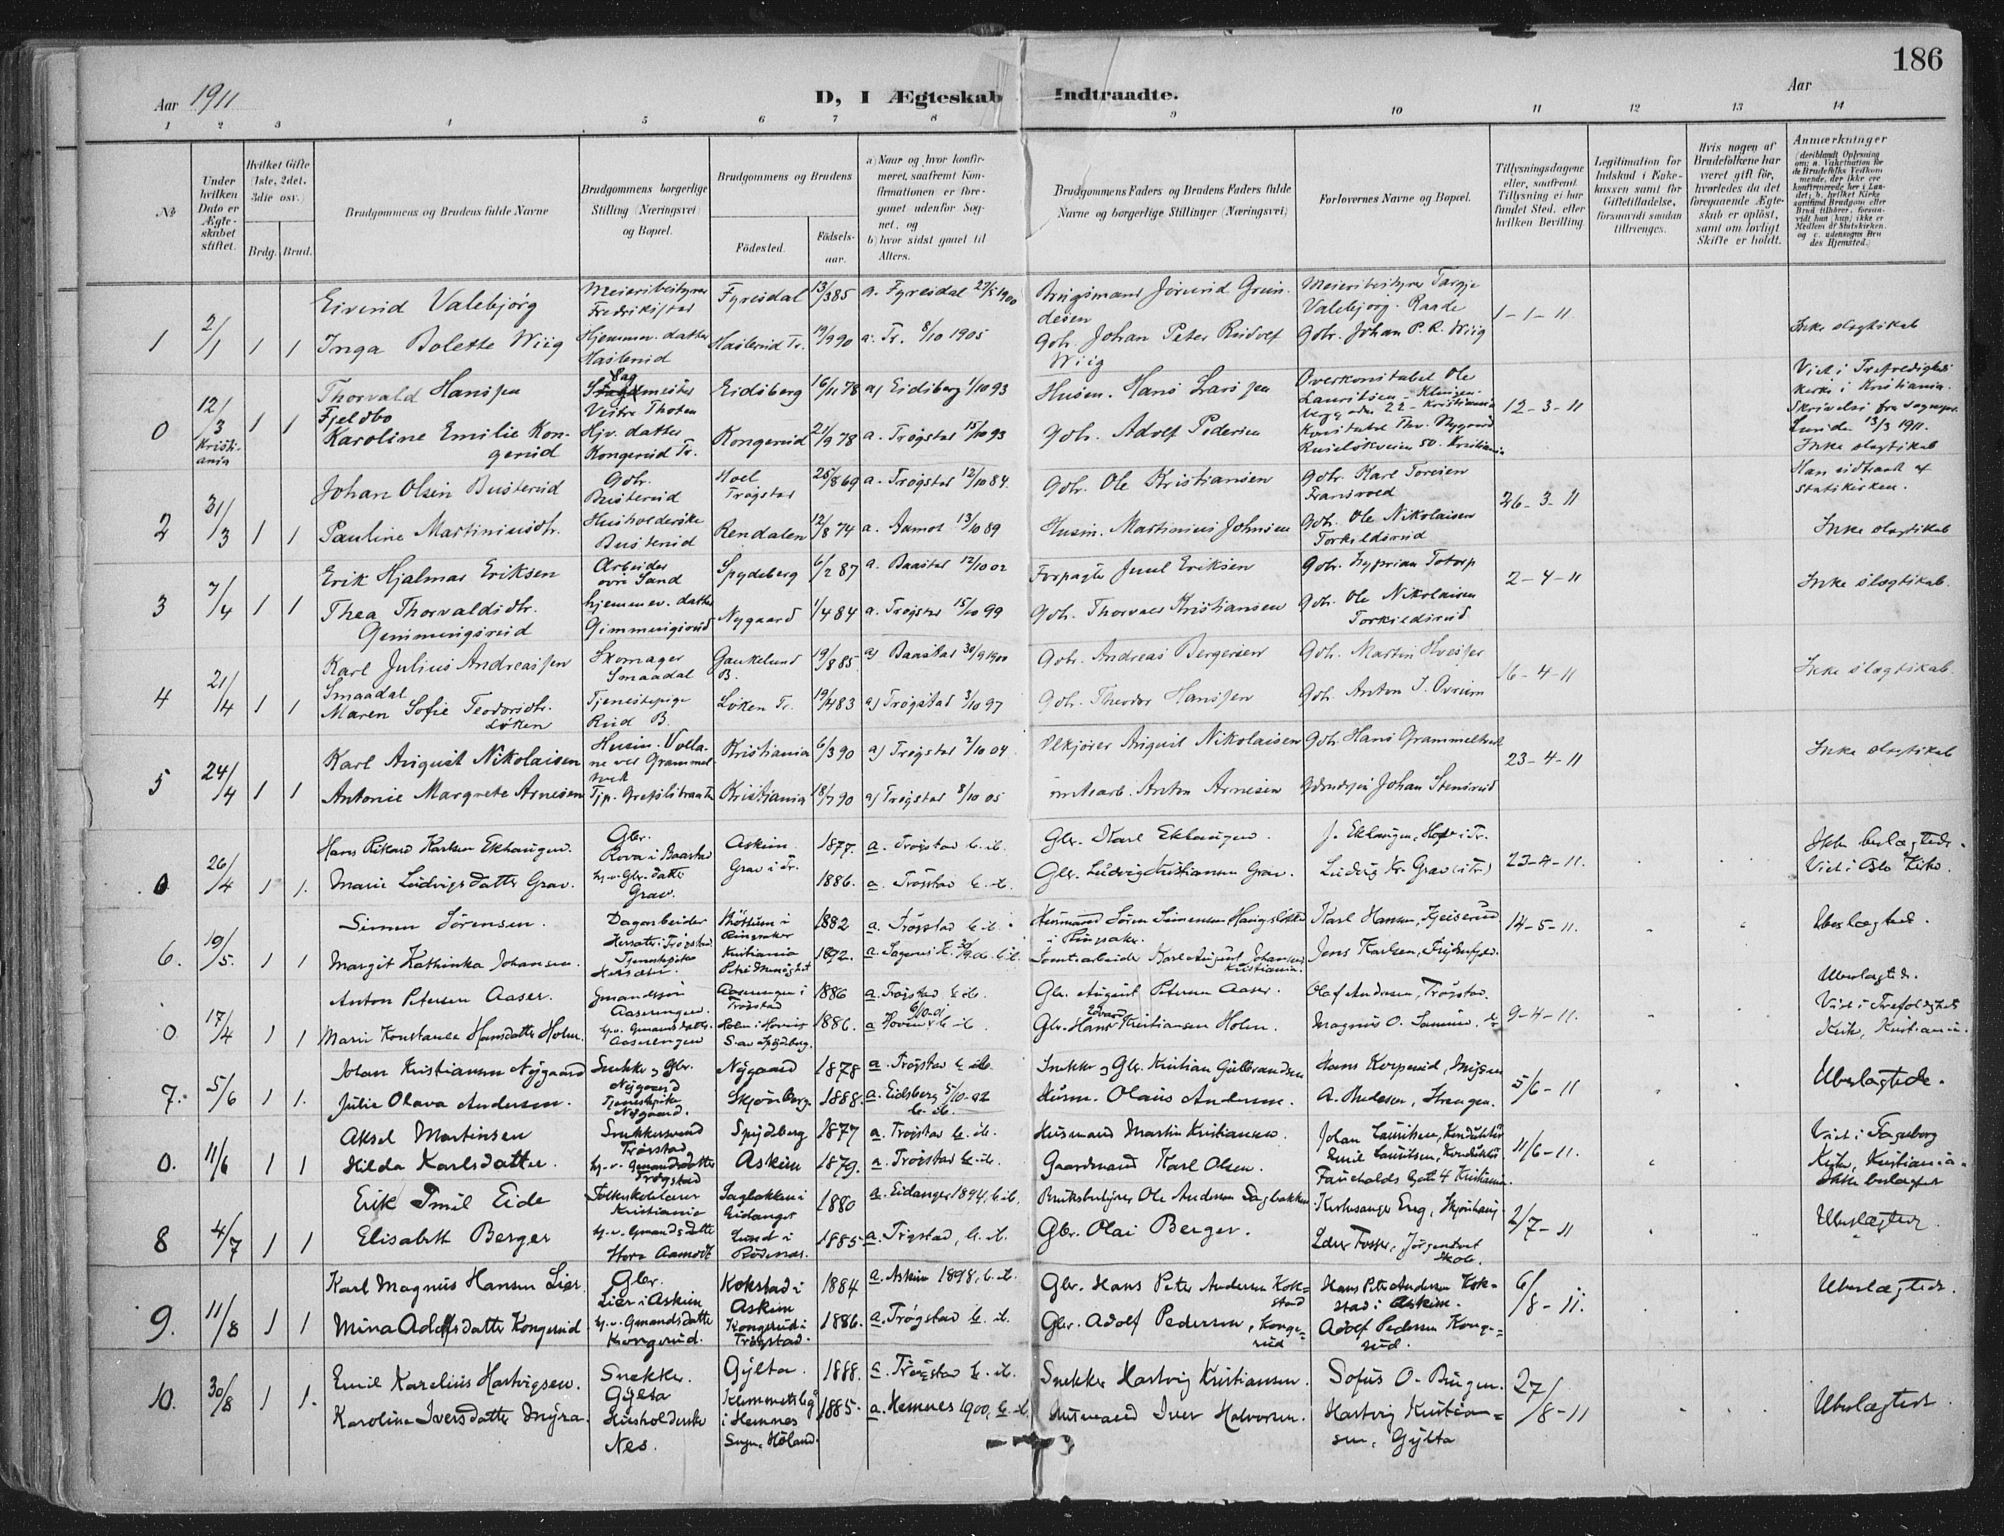 186
Aar 1911
D, I Ægteskab Indtraadte.
Aar
1 2 3 4 5 6 7 8 9 10 11 12 13 14
No
Under hvilken Dato er Ægteskabet stiftet.
Hvilket Gifte (1ste, 2det, 3die osv.)
Brdg. Brud.
Brudgommens og Brudens fulde Navne
Brudgommens borgerlige Stilling (Næringsvei) og Bopæl.
Brudgommens og Brudens
Fødested. Fødsels-aar.
a) Naar og hvor konfirmeret, saafremt Konfirmationen er foregaaet udenfor Sognet, og
b) hvor sidst gaaet til Alters.
Brudgommens Faders og Brudens Faders fulde Navne og borgerlige Stillinger (Næringsvei)
Forlovernes Navne og Bopæl.
Tillysningsdagene eller, saafremt Tillysning ei har fundet Sted, efter hvilken Bevilling.
Legitimation for Indskud i Enkekassen samt for Giftetilladelse, forsaavidt saadan tiltrænges.
Hvis nogen af Brudefolkene har været gift før, hvorledes da det foregaaende Ægteskab er opløst, samt om lovligt Skifte er holdt.
Anmærkninger
Eivind Valebjørg Meieribestyrer Fredrikstad Fyresdal 13/3 85 a. Fyresdal 27/5 1900 Meieribestyrer Targje Valebjørg. Raade
1 2/1 1 1 Inga Bolette Wiig Hjemmev. datter Haslerud Haslerud Tr. 19/9 90 a. Tr. 8/10 1905 Gbr. Johan Peter Rudolf Wiig Gbr. Johan P. R. Wiig 1-1-11 Ikke slegtskab
Thorvald Hanssen Fjeldbo Sagmester Vestre Thoten Eidsberg 16/11 78 a) Eidsberg 1/10 93 Husm. Hans Larssen Overkonstabel Ole Lauritsen - Klingenberggaden 22 - Kristiania
0 12/3 Kristiania 1 1 Karoline Emilie Kongerud Hjv. datter Kongerud Tr. Kongerud 21/9 78 a. Trøgstad 15/10 93 Gbr. Adolf Pedersen Konstabel Thv. Nygaard Ruseløkveien 50. Kristiania 12-3-11 Viet i Trefoldigheds kirke i Kristiania. 13/3 1911. Ikke slegtskab
Johan Olsen Busterud Gbr. Busterud Hoel Trøgstad 25/8 69 a. Trøgstad 12/10 84 Gbr. Ole Kristiansen Gbr. Karl Toresen Han udtraadt af statskirken.
2 31/3 1 1 Pauline Martiniusdtr. Husholderske Busterud Rendalen 12/8 74 a. Aamot 13/10 89 Husm. Martinius Johnsen Gbr. Ole Nikolaisen Torkildsrud 26-3-11 Ikke slegtskab
Erik Hjalmar Eriksen Arbeider Spydeberg 6/2 87 a. Baastad 12/10 02 Forpagter Juul Eriksen Gbr. Kyprian Totorp
3 7/4 1 1 Thea Thorvaldsdtr. Gimmingsrud hjemmev. datter Gimmingsrud Nygaard 1/4 84 a. Trøgstad 15/10 99 Gbr. Thorvald Kristiansen Gbr. Ole Nikolaisen Torkildsrud 2-4-11 Ikke slegtskab.
Karl Julius Andreassen Smaadal Skomager Smaadal Gaukelund B. 19/8 85 a) Baastad 30/9 1900 Gbr. Andreas Bergersen Gbr. Martin
4 21/4 1 1 Maren Sofie Teodorsdtr. Løken Tjenestepige Rud B. Løken Tr. 83 a) Trøgstad 3/10 97 Gbr. Theodor Hanssen Gbr. Anton J. Ovrum 16-4-11 Ikke slegtskab.
Karl August Nikolaisen Kristiania 6/3 90 a) Trøgstad 2/10 04 Ølkjører August Nikolaisen Gbr. Hans Grammeltvedt
5 24/4 1 1 Antonie Margrete Arnesen Kristiania 18/7 90 a) Trøgstad 8/10 05 Anton Arnesen Johan Stensrud 23-4-11 Ikke slegtskab
Hans Rikard Karlsen Ekhaugen. Gbr. Rova i Baastad Askim 1877. a. Trøgstad b. ib. Gbr. Karl Ekhaugen. J. Ekhaugen, Hof i Tr.
0 26/4 1 1. Marie Ludvigsdatter Grav. hj. v. Gbr. datter Grav. Grav i Tr. 1886. a. Trøgstad b. ib. Gbr. Ludvig Kristiansen Grav. Ludvig Kr. Grav (i Tr) 23-4-11. Ikke beslægtede. Viet i Oslo Kirke.
Simen Sørensen. Dagarbeider Hersæter i Trøgstad. i Ringsaker 1882 a. Trøgstad b. ib. Husmand Søren Simensen i Ringsaker. Karl Hansen, Kjeiserud
6. 19/5. 1 1 Margit Kathinka Johansen. Tjenestepike Hersæter Kristiania Petri Menighet 1892. Tomtearbeider Karl August Johansen Kristiania. Jens Karlsen, 14-5-11. Ubeslægtede.
Anton Petersen Aaser. Gmandssøn Aaserengen. Aaserengen i Trøgstad 1886 a. Trøgstad b. ib. Gbr. August Petersen Aaser. Olaf Andresen, Trøgstad. Ubeslægtede.
0 17/4 1 1 Marie Konstance Hansdatter Holm. hj. v. Gmandsdatter Aaserengen Holm i Hovins S. av Spydberg. 1886. a Hovin b. ib. Gbr. Hans Edvard Kristiansen Holm. Magnus O. 9-4-11. Viet i Trefoldighets Kirke, Kristiania.
Johan Kristiansen Nygaard Snekker og Gbr. Nygaard Nygaard 1878 a. Trøgstad b. ib. Snekker og Gbr. Kristian Gulbrandsen Hans Korperud, Mysen
7. 5/6 1 1. Julie Olava Andersen. Tjenestepike Nygaard. Skjønberg. 1888. a. Eidsberg 5/10-02 b. ib. Husm. Olaus Andersen. A. Andersen, Strengen. 5/6-11 Ubeslægtede.
Aksel Martinsen Snekkersvend Trøgstad Spydberg 1877 a. Trøgstad b. ib. Husmand Martin Kristiansen. Johan Lauritsen, Konduktør
0. 11/6 1 1 Hilda Karlsdatter hj. v. Gmandsdatter Trøgstad Askim 1879. a. Trøgstad b. ib. Gaardmand Karl Olsen. Emil Lauritsen, Konduktør Faucholds Gate 4 Kristiania. 11/6-11. Viet i Fagerborg Kirke, Kristiania. Ikke beslægtet
Erik Emil Eide Folkeskolelærer Kristiania Sagbakken i Eidanger 1880 a. Eidanger 1894, b. ib. Bruksbestyrer Ole Andersen Sagbakken Kirkesanger Eng, Skjønhaug
8 4/7 1 1 Elisabeth Berger hj. v. Gmandsdatter Store Aamodt Lund i Rødenes. 1885 a. Trøgstad, b. ib. Gbr. Olai Berger. Lærer Fosser, Jørgentvet Skole. 2/7-11 Ubeslægtede.
Karl Magnus Hansen Lier. Gbr. Lier i Askim Kokstad i Askim 1884 a. Askim 1898, b. ib. Gbr. Hans Peter Andersen Kokstad Hans Peter Andersen Kokstad i Askim.
9. 11/8 1 1 Mina Adolfsdatter Kongerud hj. v. Gmandsdatter Kongerud. Kongerud i Trøgstad. 1886. a. Trøgstad b. ib. Gbr. Adolf Pedersen, Kongerud Adolf Pedersen Kongerud. 6/8-11. Ubeslægtede.
Emil Karelius Hartvigsen. Snekker. Gylta Gylta. 1888. a. Trøgstad b. ib. Snekker Hartvig Kristiansen. Sofus O. Burgen.
10. 30/8 1 1. Karoline Iversdatter Myra. Husholderske Nes. Klemmetsby i Hemnes Sogn, Høland. 1885. a. Hemnes 1900, b. ib. Husmand Iver Halvorsen. Hartvig Kristiansen, Gylta 27/8-11 Ubeslægtede.